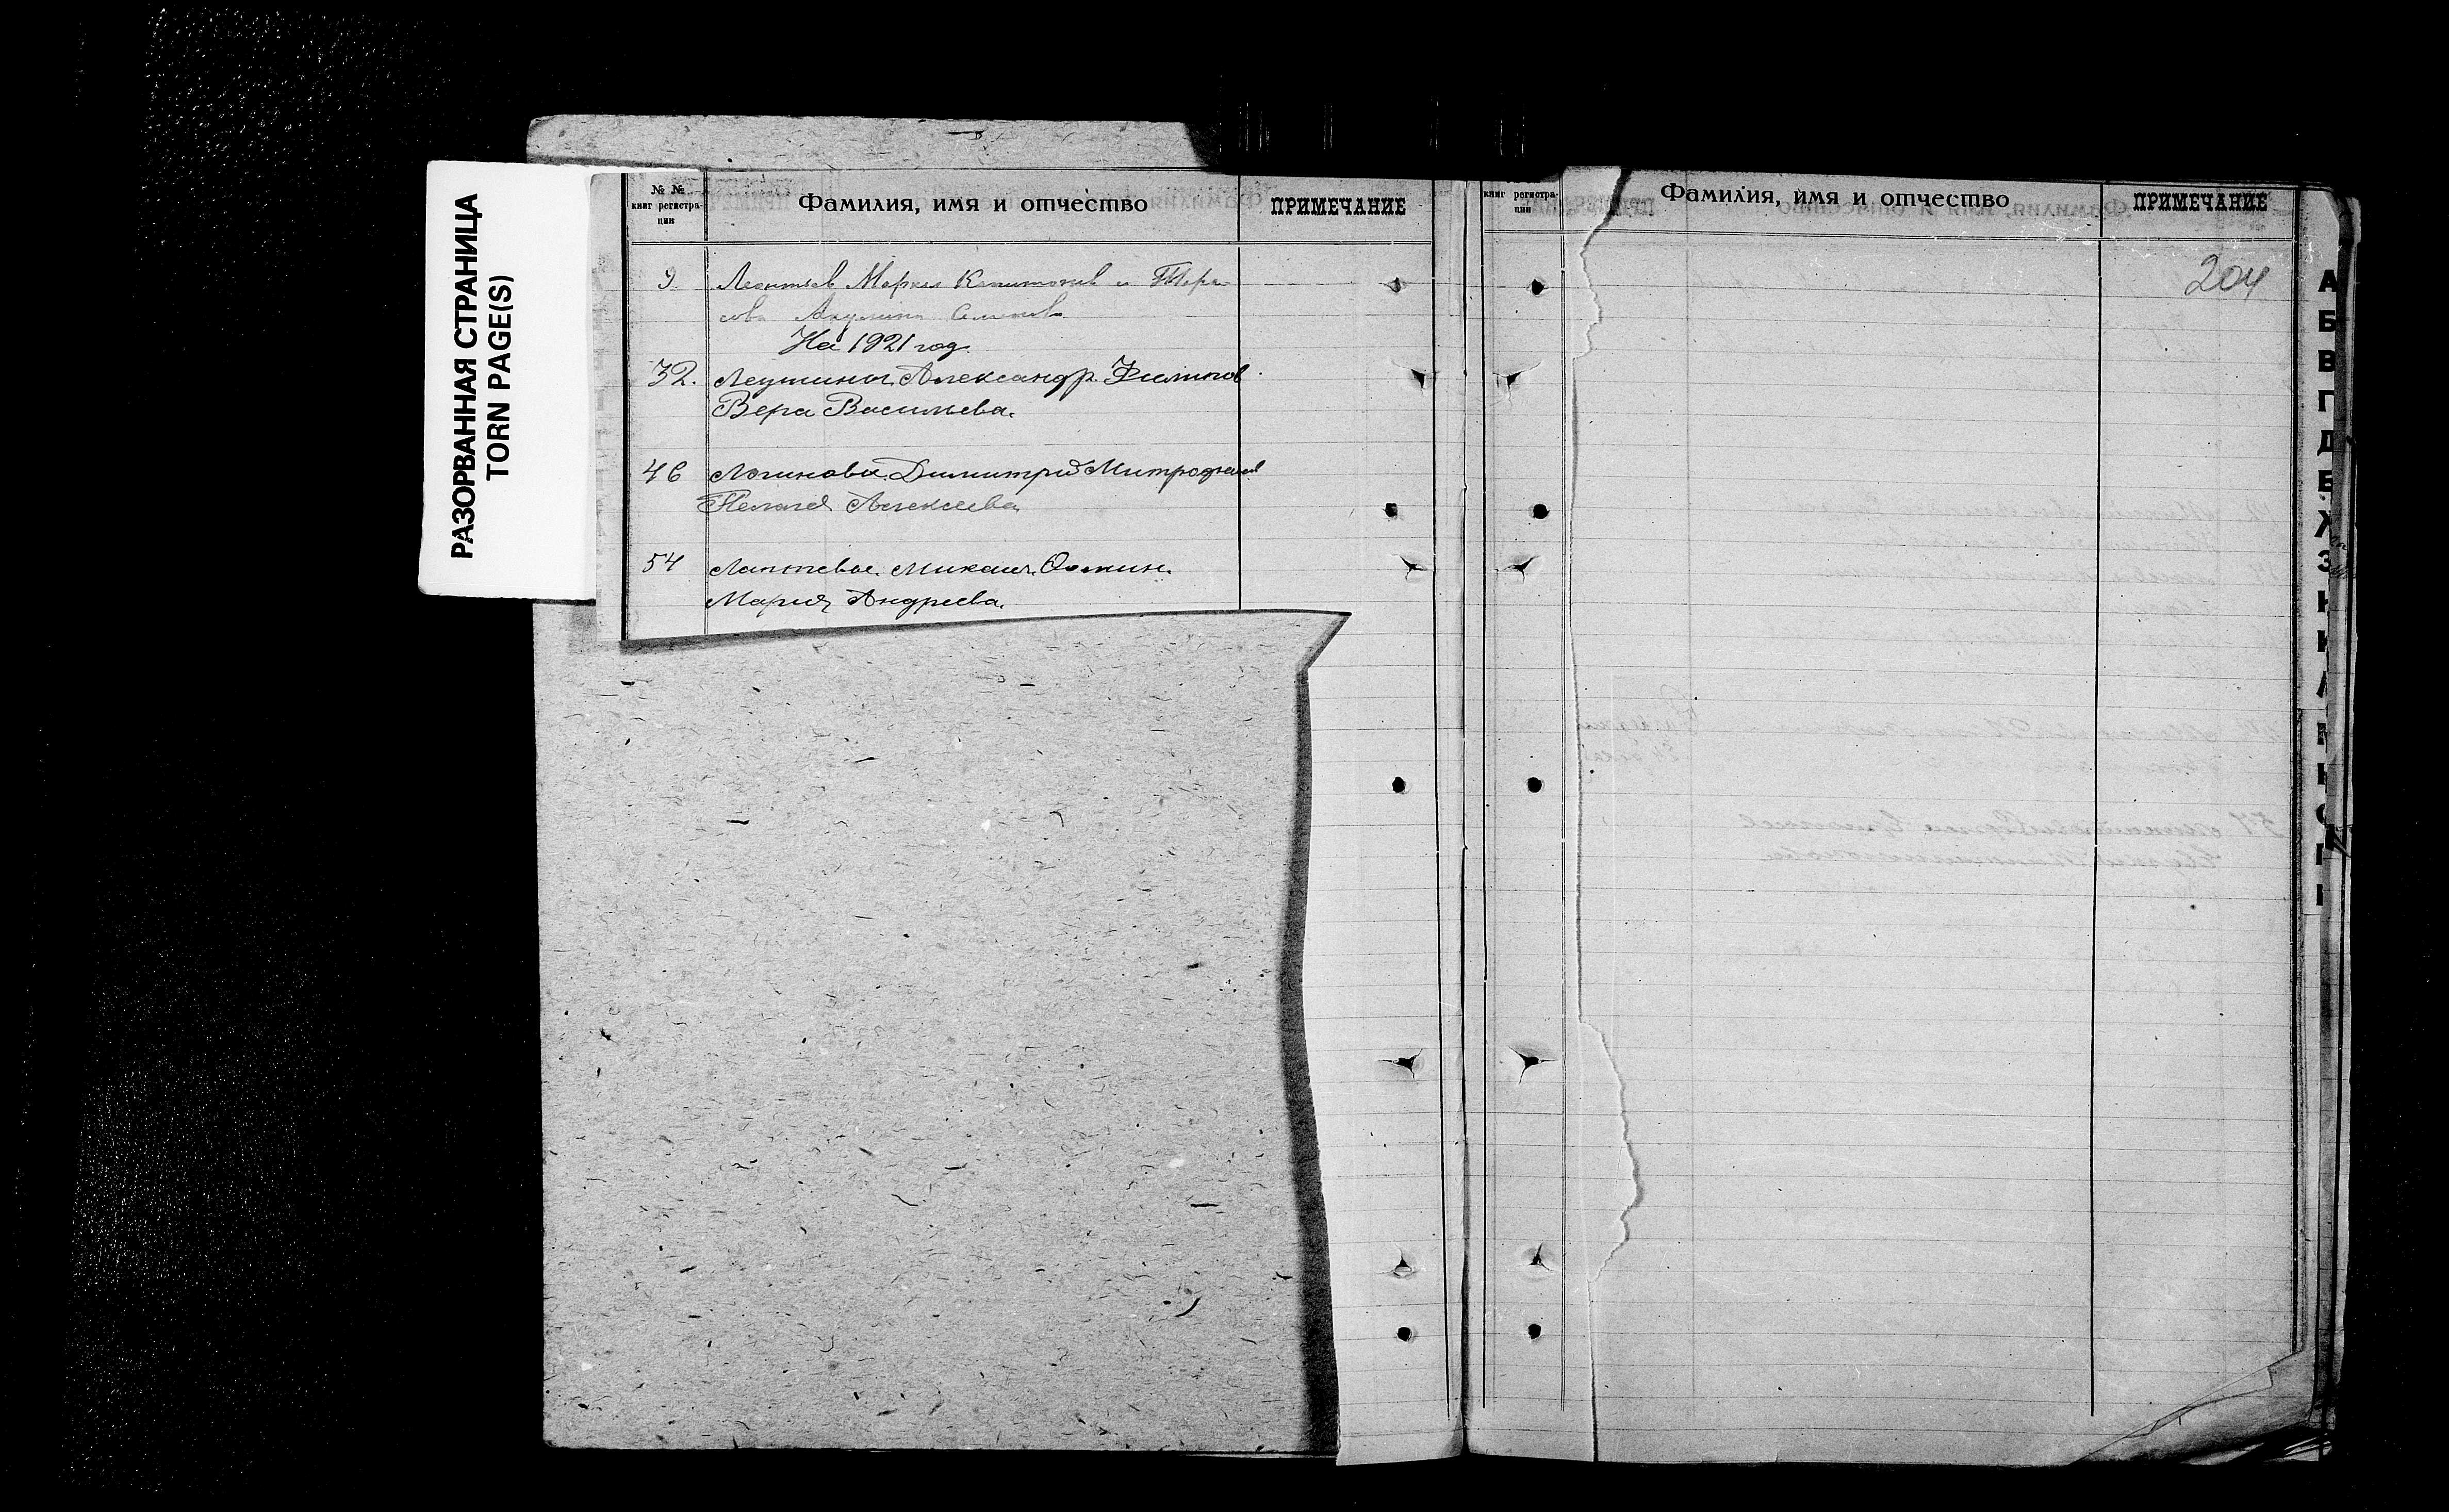 РАЗОРВАННАЯ СТРАНИЦА
TORN PAGE(S)
№ № книг регистрации
Фамилия, имя и отчество
ПРИМЕЧАНИЕ
9. Леонтьев Маркел Капитонов и Тара-
сова Акулина Семенова
На 1921 год.
32. Леушины Александр Филипов
Вера Васильева.
46 Логиновы Димитрий Митрофанов
Пелагея Алексеева
54 Лаптевы. Михаил
Мария Андреева.
книг регистрации
Фамилия, имя и отчество
ПРИМЕЧАНИЕ
204
А
Б
В
Г
Д
Е